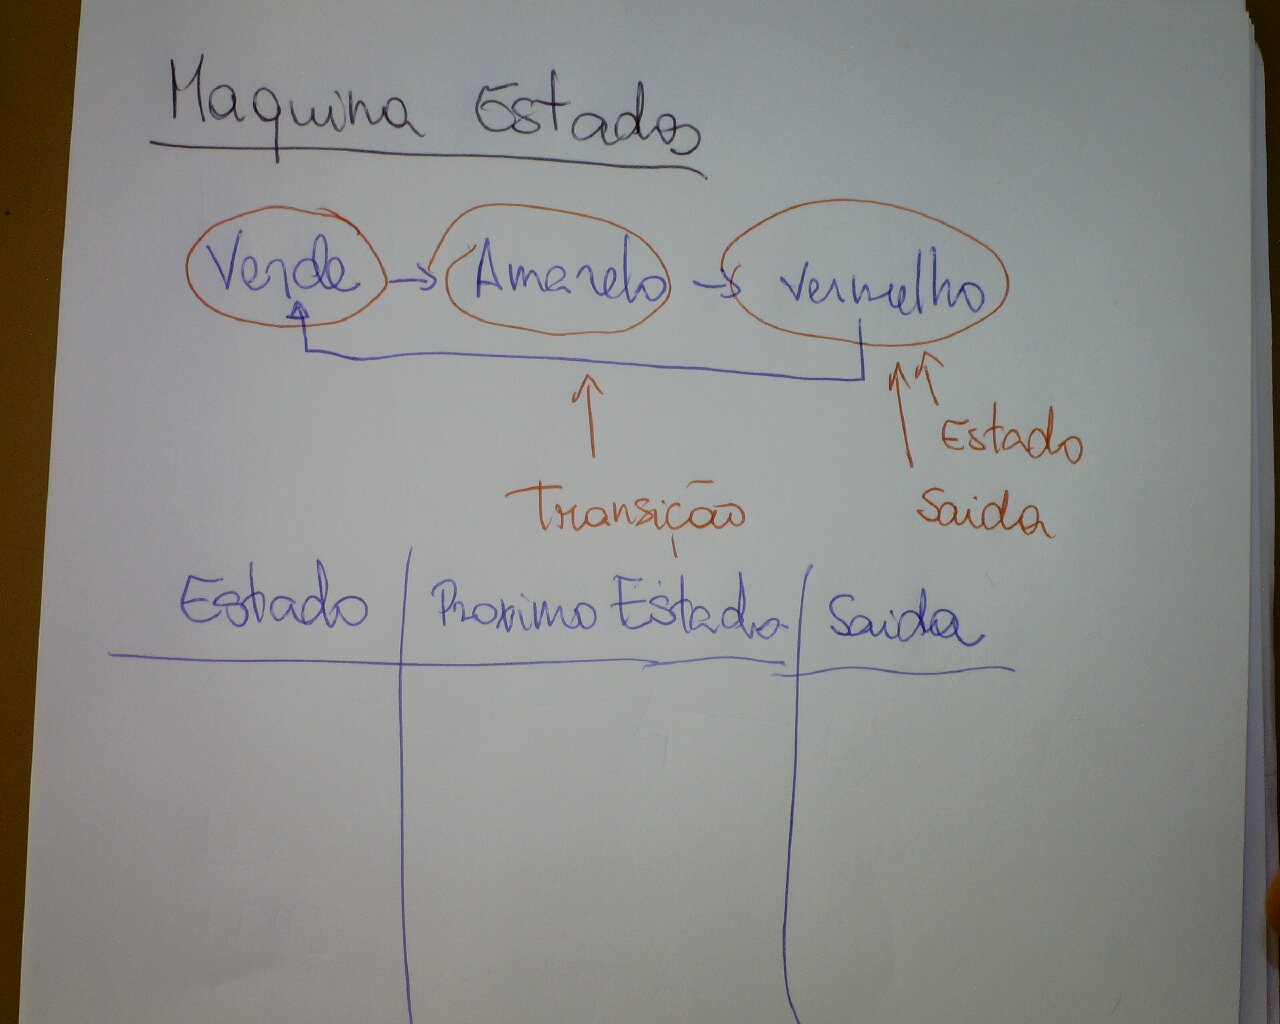 Maquina Estados
Verde → Amarelo → Vermelho
Estado
Transição Saida
Estado Proximo Estado Saida